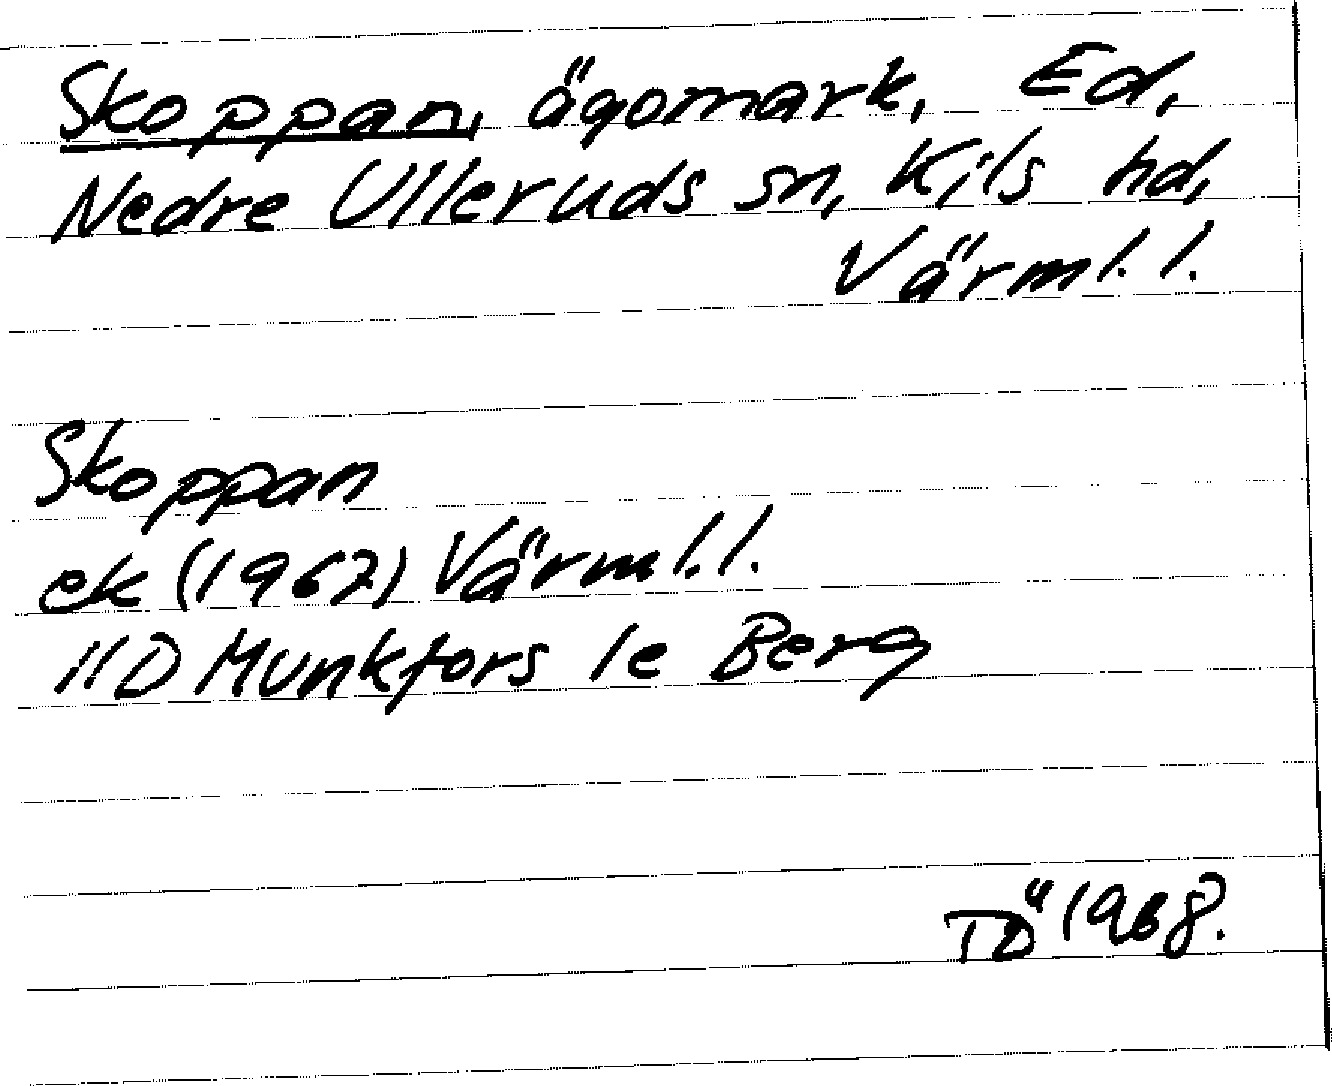 Skoppan, ägomark, Ed,
Nedre Ulleruds sn, Kils hd,
Värml. l.
Skoppan
ek (1962) Värml. l.
11D Munkfors 1e Berg
TÖ 1968.